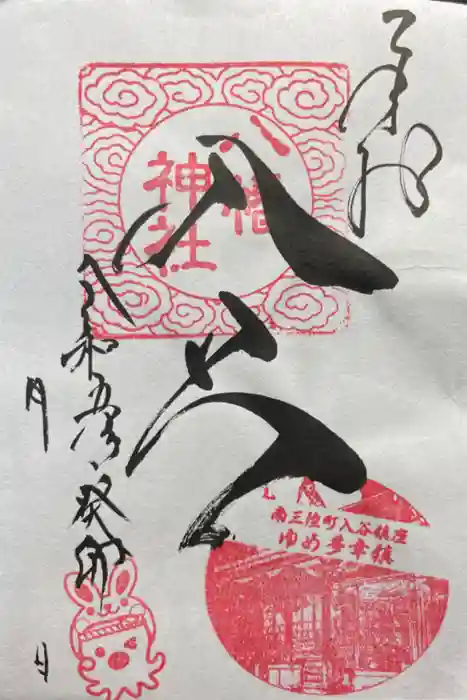 奉拝
入谷
八幡
神社
令和五 癸卯
月
日
南三陸町入谷鎮座
ゆめ多幸鎮